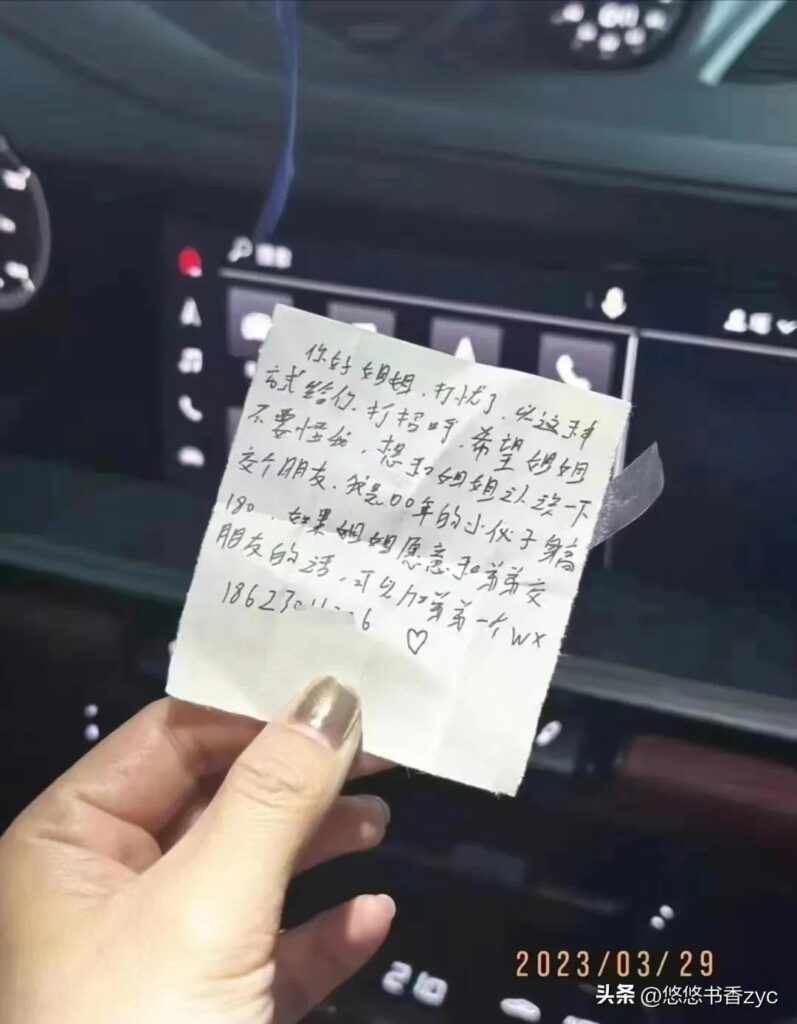 你好姐姐.打扰了.以这种
方式给你.打招呼.希望姐姐
不要怪我.想和姐姐认识一下
交个朋友.我是00年的小伙子身高
180.如果姐姐愿意和弟弟交
朋友的话,可以加弟弟一个WX
18623 6 ♡
2023/03/29
头条 @悠悠书香zyc